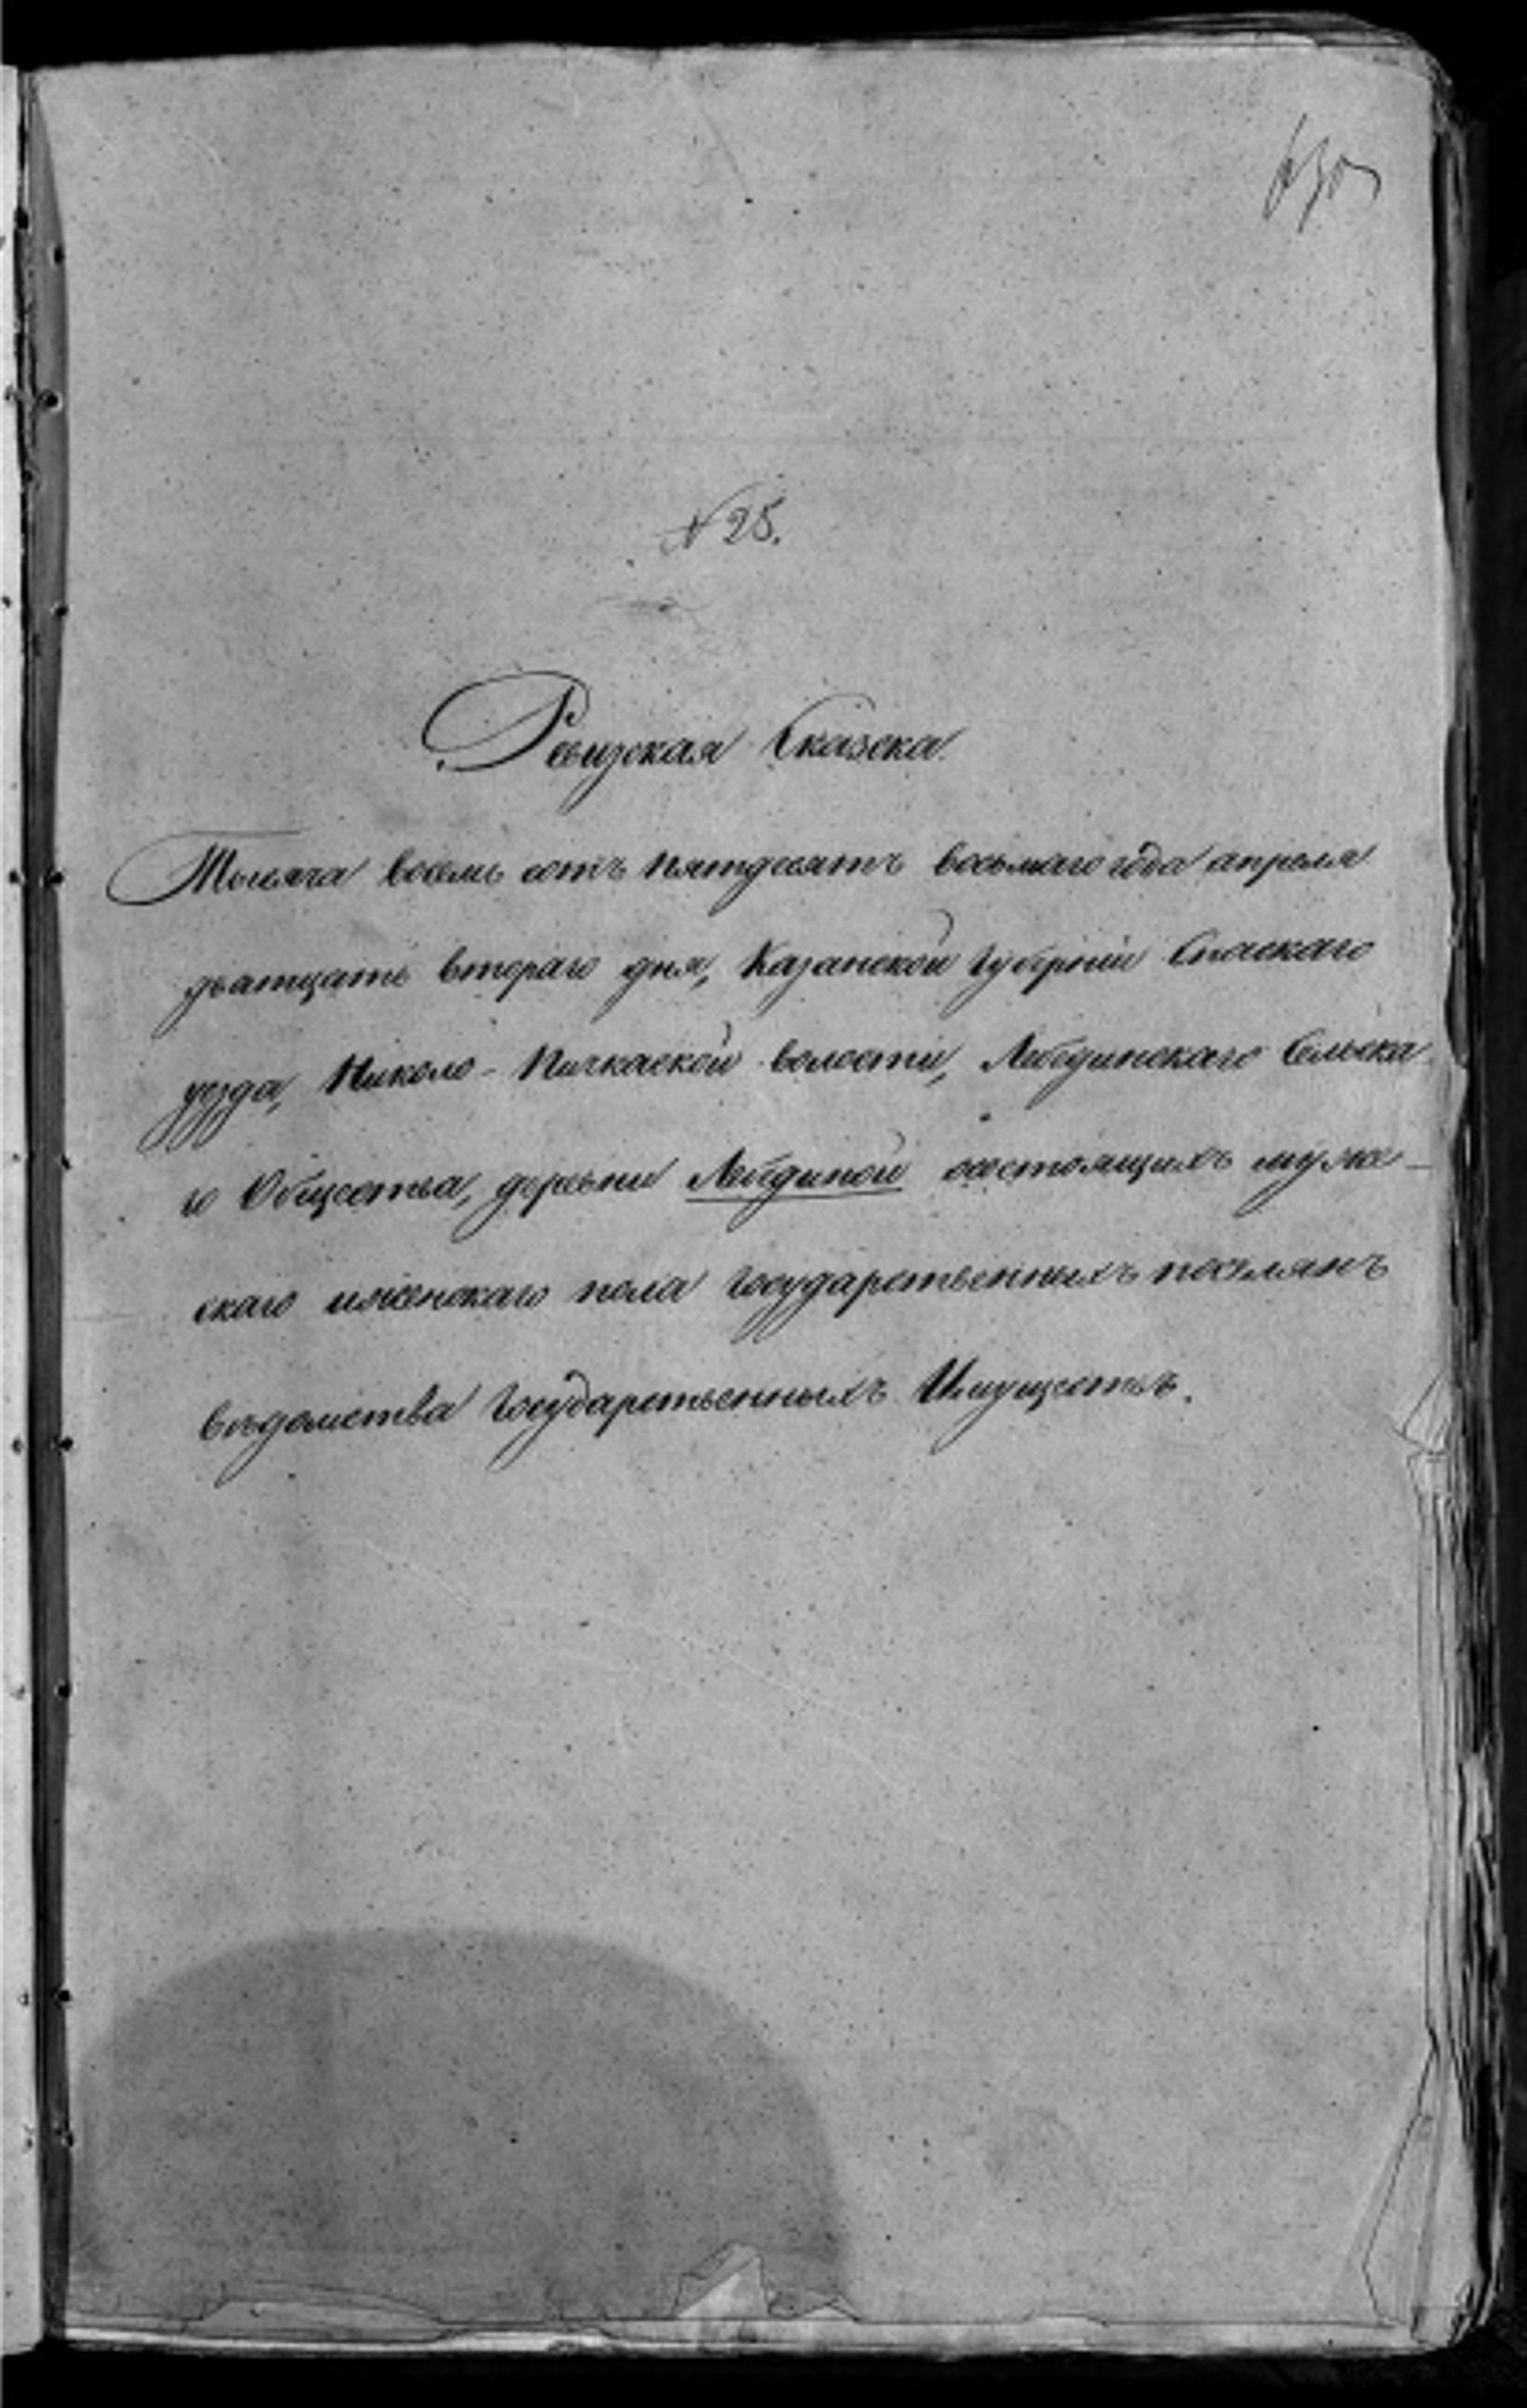 № 25.
Ревизская Сказка
Тысяча восемь сотъ пятдесятъ восьмаго года апреля
дватцать втораго дня, Казанской губерніи Спаскаго
уезда, Николо-Пичкаской волости, Лебединскаго Сельска
го Общества, деревни Лебединой состоящихъ муже-
скаго и женскаго пола государственныхъ поселянъ
ведомства Государственныхъ Имуществъ.